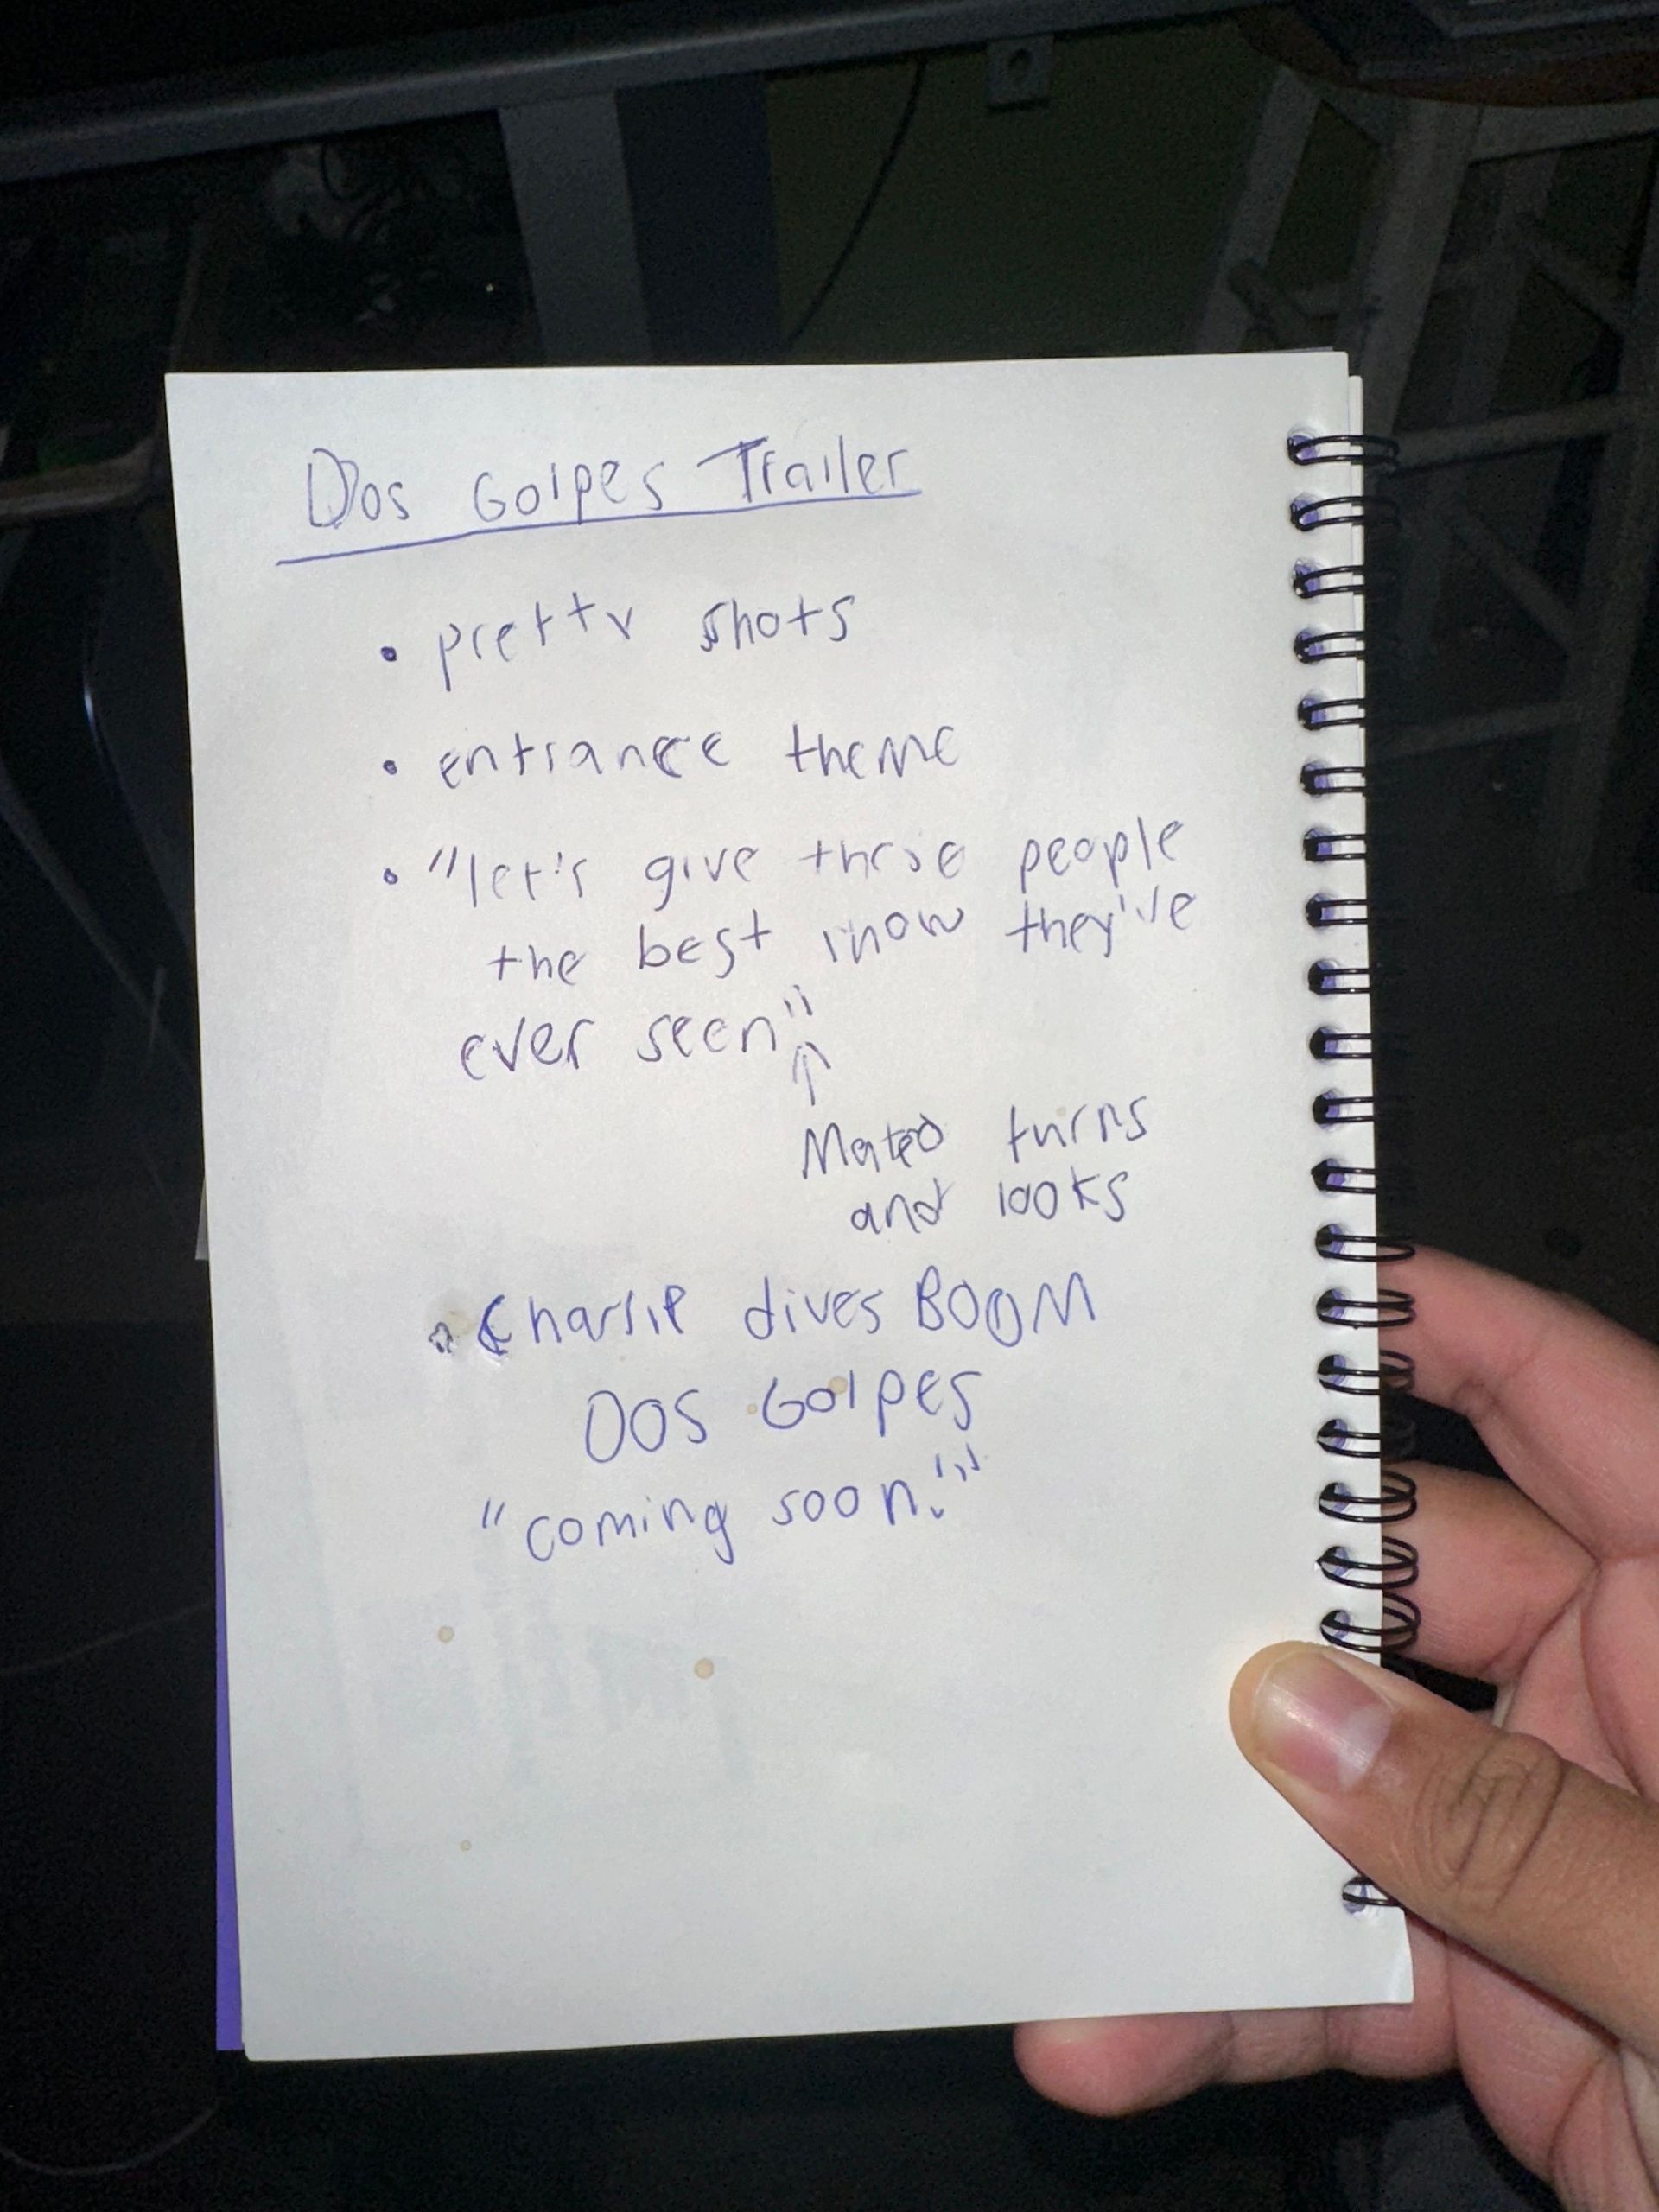 Dos Golpes Trailer
• pretty shots
• entrance theme
• "let's give these people
the best show they've
ever seen"
↑
Mateo turns
and looks
• Charlie dives BOOM
DOS GOlPES
"coming soon."